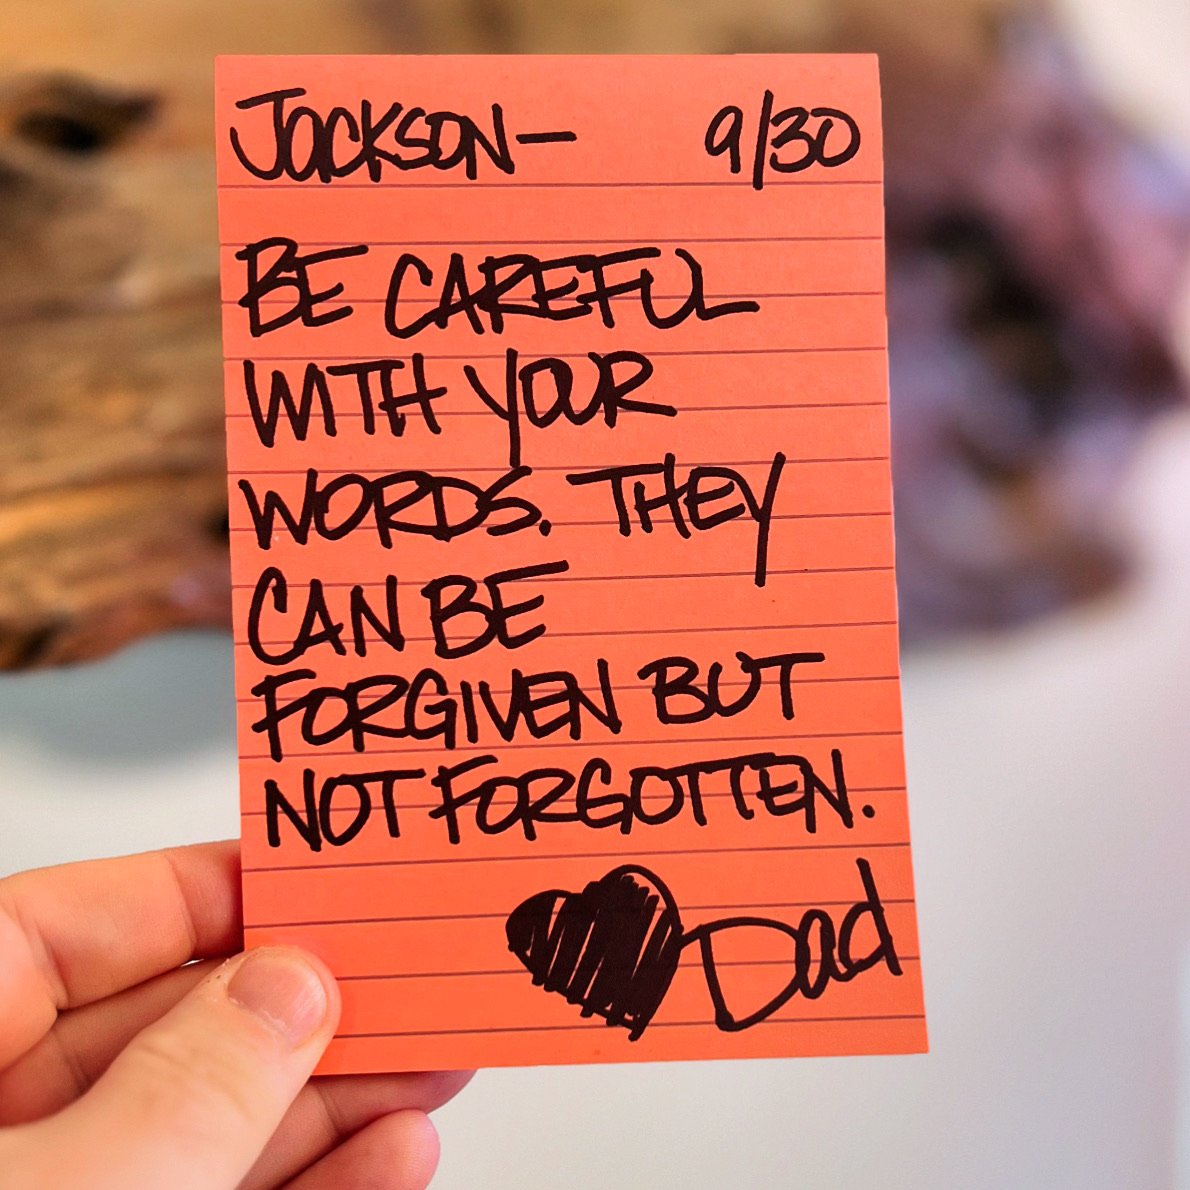 JACKSON— 9/30
BE CAREFUL
WITH YOUR
WORDS. THEY
CAN BE
FORGIVEN BUT
NOT FORGOTTEN.
Dad